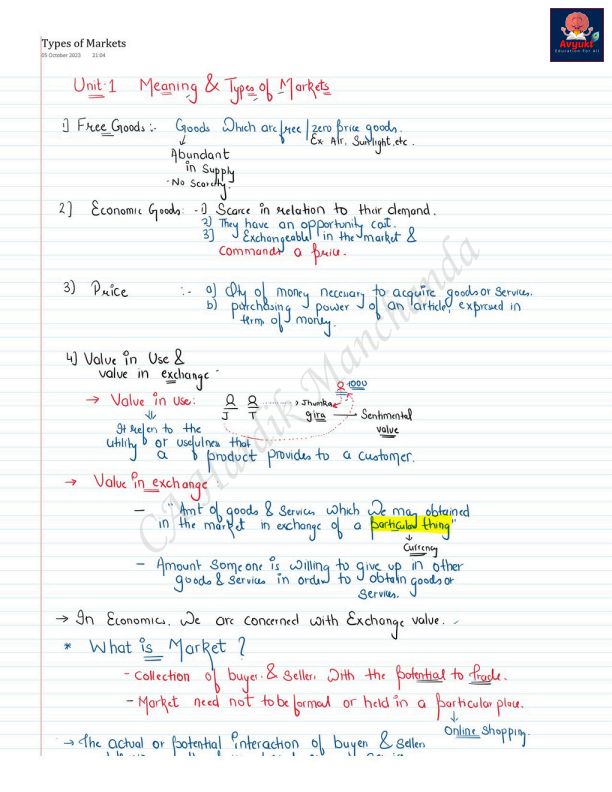 Avyukt
Education For All
Types of Markets
05 October 2023 21:04
Unit-1 Meaning & Types of Markets
1) Free Goods :- Goods which are free / zero price goods.
Ex Air, Sunlight, etc.
Abundant
in Supply
- No Scarcity.
2] Economic Goods: - 1) Scarce in relation to their demand.
2) They have an opportunity cost.
3] Exchangeable in the market &
commands a price.
3) Price :- a) Qty of money necessary to acquire goods or services.
b) purchasing power of an article, expressed in
term of money.
4) Value in Use &
value in exchange
→ Value in use:
1000
J T Jhumka
gira Sentimental
value
It refers to the
utility or usefulness that
a product provides to a customer.
→ Value in exchange :
- "Amt of goods & Services which we may obtained
in the market in exchange of a particular thing"
Currency
- Amount Someone is willing to give up in other
goods & services in order to obtain goods or
Services.
→ In Economics, we are concerned with Exchange value.
* What is Market ?
- Collection of buyers & Sellers with the potential to trade.
- Market need not to be formal or held in a particular place.
Online Shopping.
→ The actual or potential interaction of buyers & Sellers
CA Hardik Manchanda